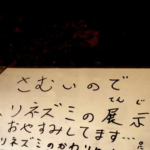 さむいので
リネズミの展示
てんじ
おやすみしてます…
リネズミのかわり